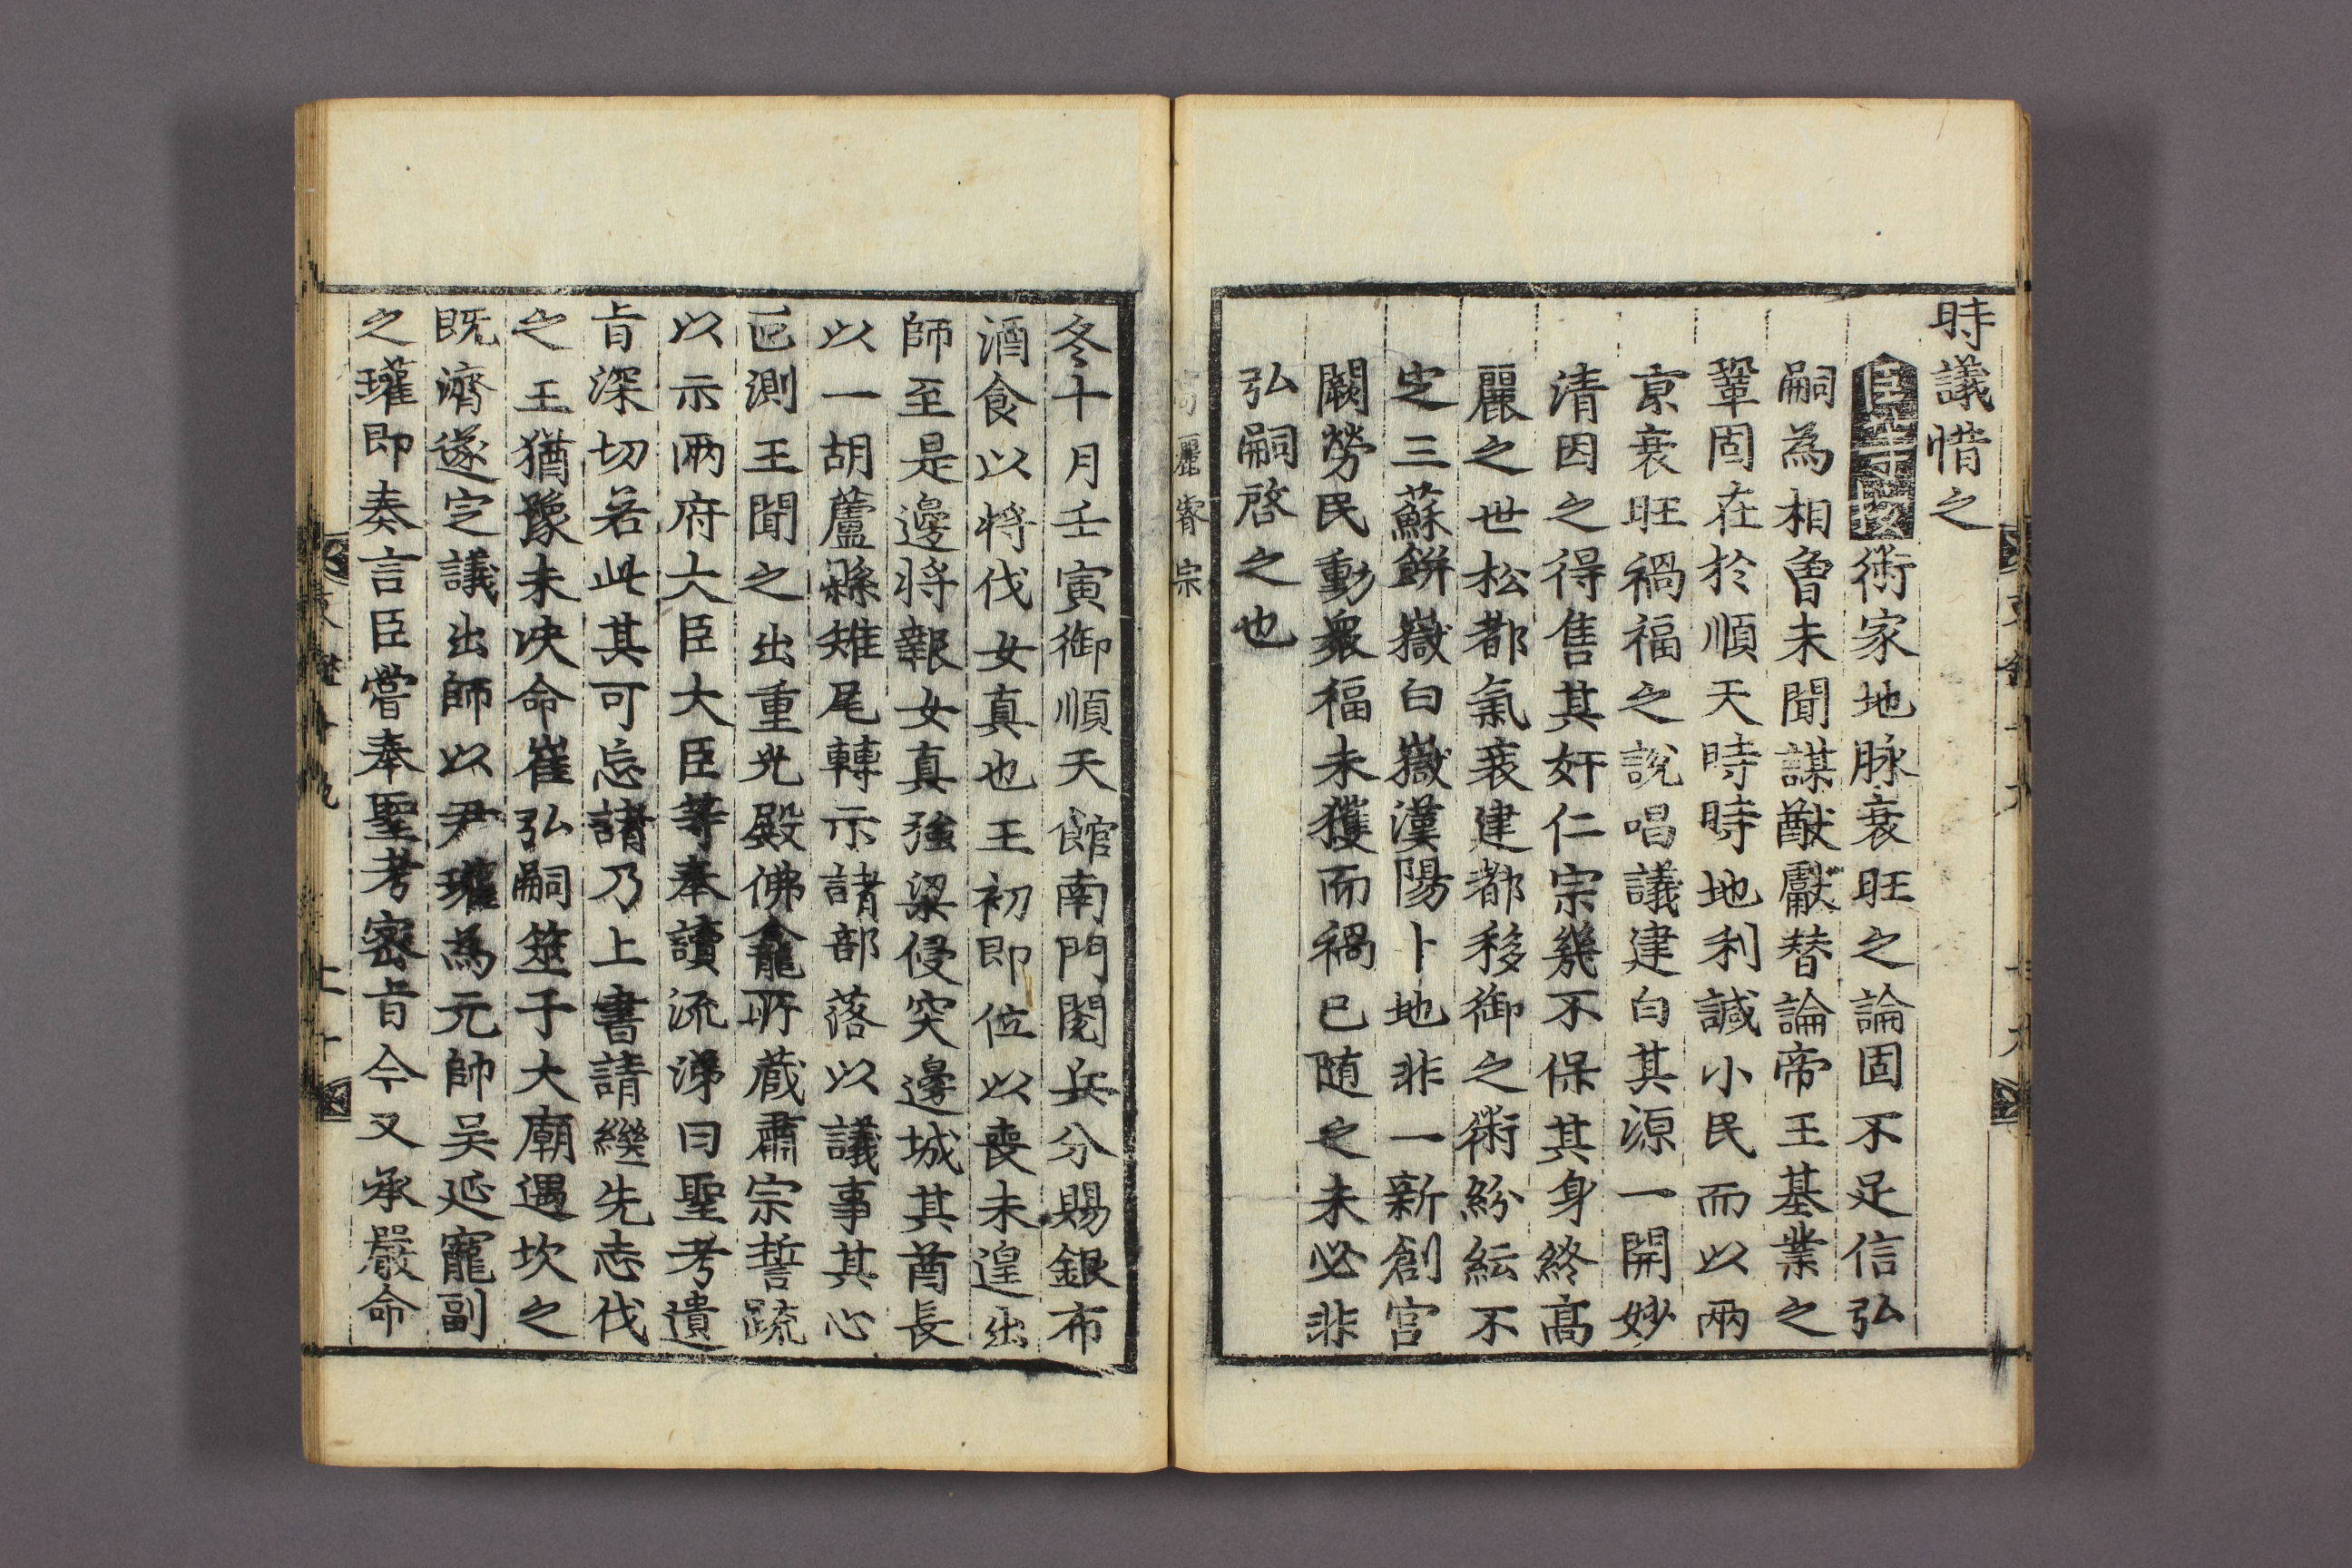 時議惜之
臣等按術家地脉衰旺之論固不足信弘
嗣為相魯未聞謀猷獻替論帝王基業之
鞏固在於順天時時地利諴小民而以兩
京衰旺禍福之說唱議建白其源一開妙
清因之得售其奸仁宗幾不保其身終高
麗之世松都氣衰建都移御之術紛紜不
定三蘇餅嶽白嶽漢陽卜地非一新創宮
闕勞民動衆福未獲而禍已随之未必非
弘嗣啓之也
高麗睿宗
冬十月壬寅御順天館南門閱兵分賜銀布
酒食以將伐女真也王初即位以喪未遑出
師至是邊將報女真強梁侵突邊城其酋長
以一胡蘆縣雉尾轉示諸部落以議事其心
叵測王聞之出重光殿佛龕所蔵肅宗誓疏
以示兩府大臣大臣等奉讀流涕曰聖考遺
旨深切若此其可忘諸乃上書請繼先志伐
之王猶豫未决命崔弘嗣筮于大廟遇坎之
既濟遂定議出師以尹瓘為元帥吴延寵副
之瓘即奏言臣嘗奉聖考密旨今又承嚴命